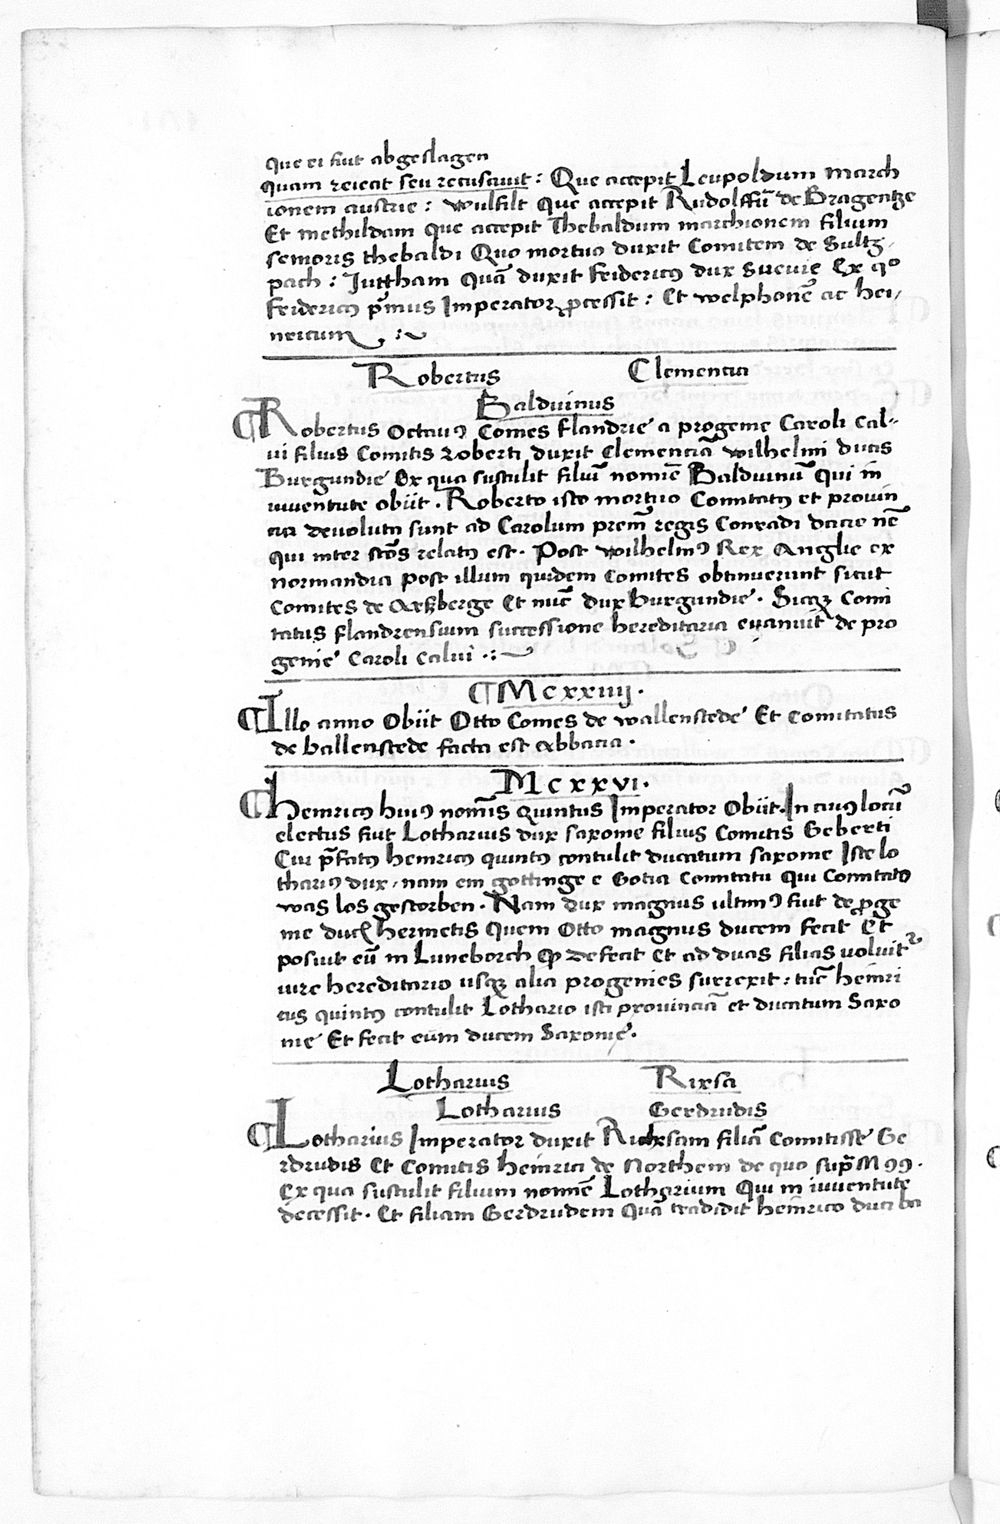 que ei fiut abgeslagen
quam reiecit seu recusauit : Que accepit Leupoldum march
ionem austrie : wulfilt que accepit Rudolffū de Bragentze
Et methildam que accepit Thebaldum marchionem filium
semoris thebaldi Quo mortuo duxit Comitem de Sultz-
pach : Juttham Quā duxit feidericꝰ dux sueuie Ex qº
feidericꝰ pͥmus Imperator ꝓcessit : Et welphonē ac hei-
nricum :~
Robertus Clementia
Balduinus
¶ Robertus Octauꝰ Comes flandrie a progenie Caroli Cal-
ui filius Comitis roberti duxit Clementiā wilhelmi ducis
Burgundie Ex qua sustulit filiū nomīe Balduinū Qui in
iuuentute obiit . Roberto isto mortuo Comitatꝰ et prouin
cia deuoluta sunt ad Carolum prem̄ regis Conradi dacie nē
Qui inter sctōs relatꝰ est . Post wilhelmꝰ Rex Anglie ex
normandia post illum quidem Comites obtinuerunt sicut
Comites de Et nūc dux Burgundie . Sicqꝫ Comi
tatus flandrensium successione hereditaria euanuit de pro
genie Caroli Calui .:~
¶ Mcxxiiij .
¶ Illo anno Obiit Otto Comes de wallenstede Et comitatus
de ballenstede facta est abbacia .
Mcxxvi .
¶ Henricꝰ huiꝰ nomīs quintus Imperator Obiit . In cuiꝰ locū
electus fiut Lotharius dux saxonie filius Comitis Geberti
Cui p̄fatꝰ henricꝰ quintꝰ contulit ducatum saxonie Iste lo
thariꝰ dux . nam en gottinge e Gotia Comitatu Qui Comitatꝰ
was los gestorben . Nam dux magnus ultimꝰ fiut de ꝓge
nie ducꝭ hermetis Quem Otto magnus ducem fecit Et
posuit eū in Luneborch ꝙ defecit Et ad duas filias uoluit
iure hereditario usqꝫ alia progenies surrexit : tūc heinri
cus quintꝰ contulit Lothario isti prouinciā et ducatum Saxo
nie Et fecit eūm ducem Saxonie .
Lotharius Rixsa
Lotharius Gerdrudis
¶ Lotharius Imperator duxit Richsam filiā Comitisse Ge
rdrudis Et Comitis heinrici de Northem de quo sup̄ M 99 .
Ex qua sustulit filium nomīe Lotharium Qui in iuuentute
decessit . Et filiam Gerdrudem Quā tradidit heinrico duci ba